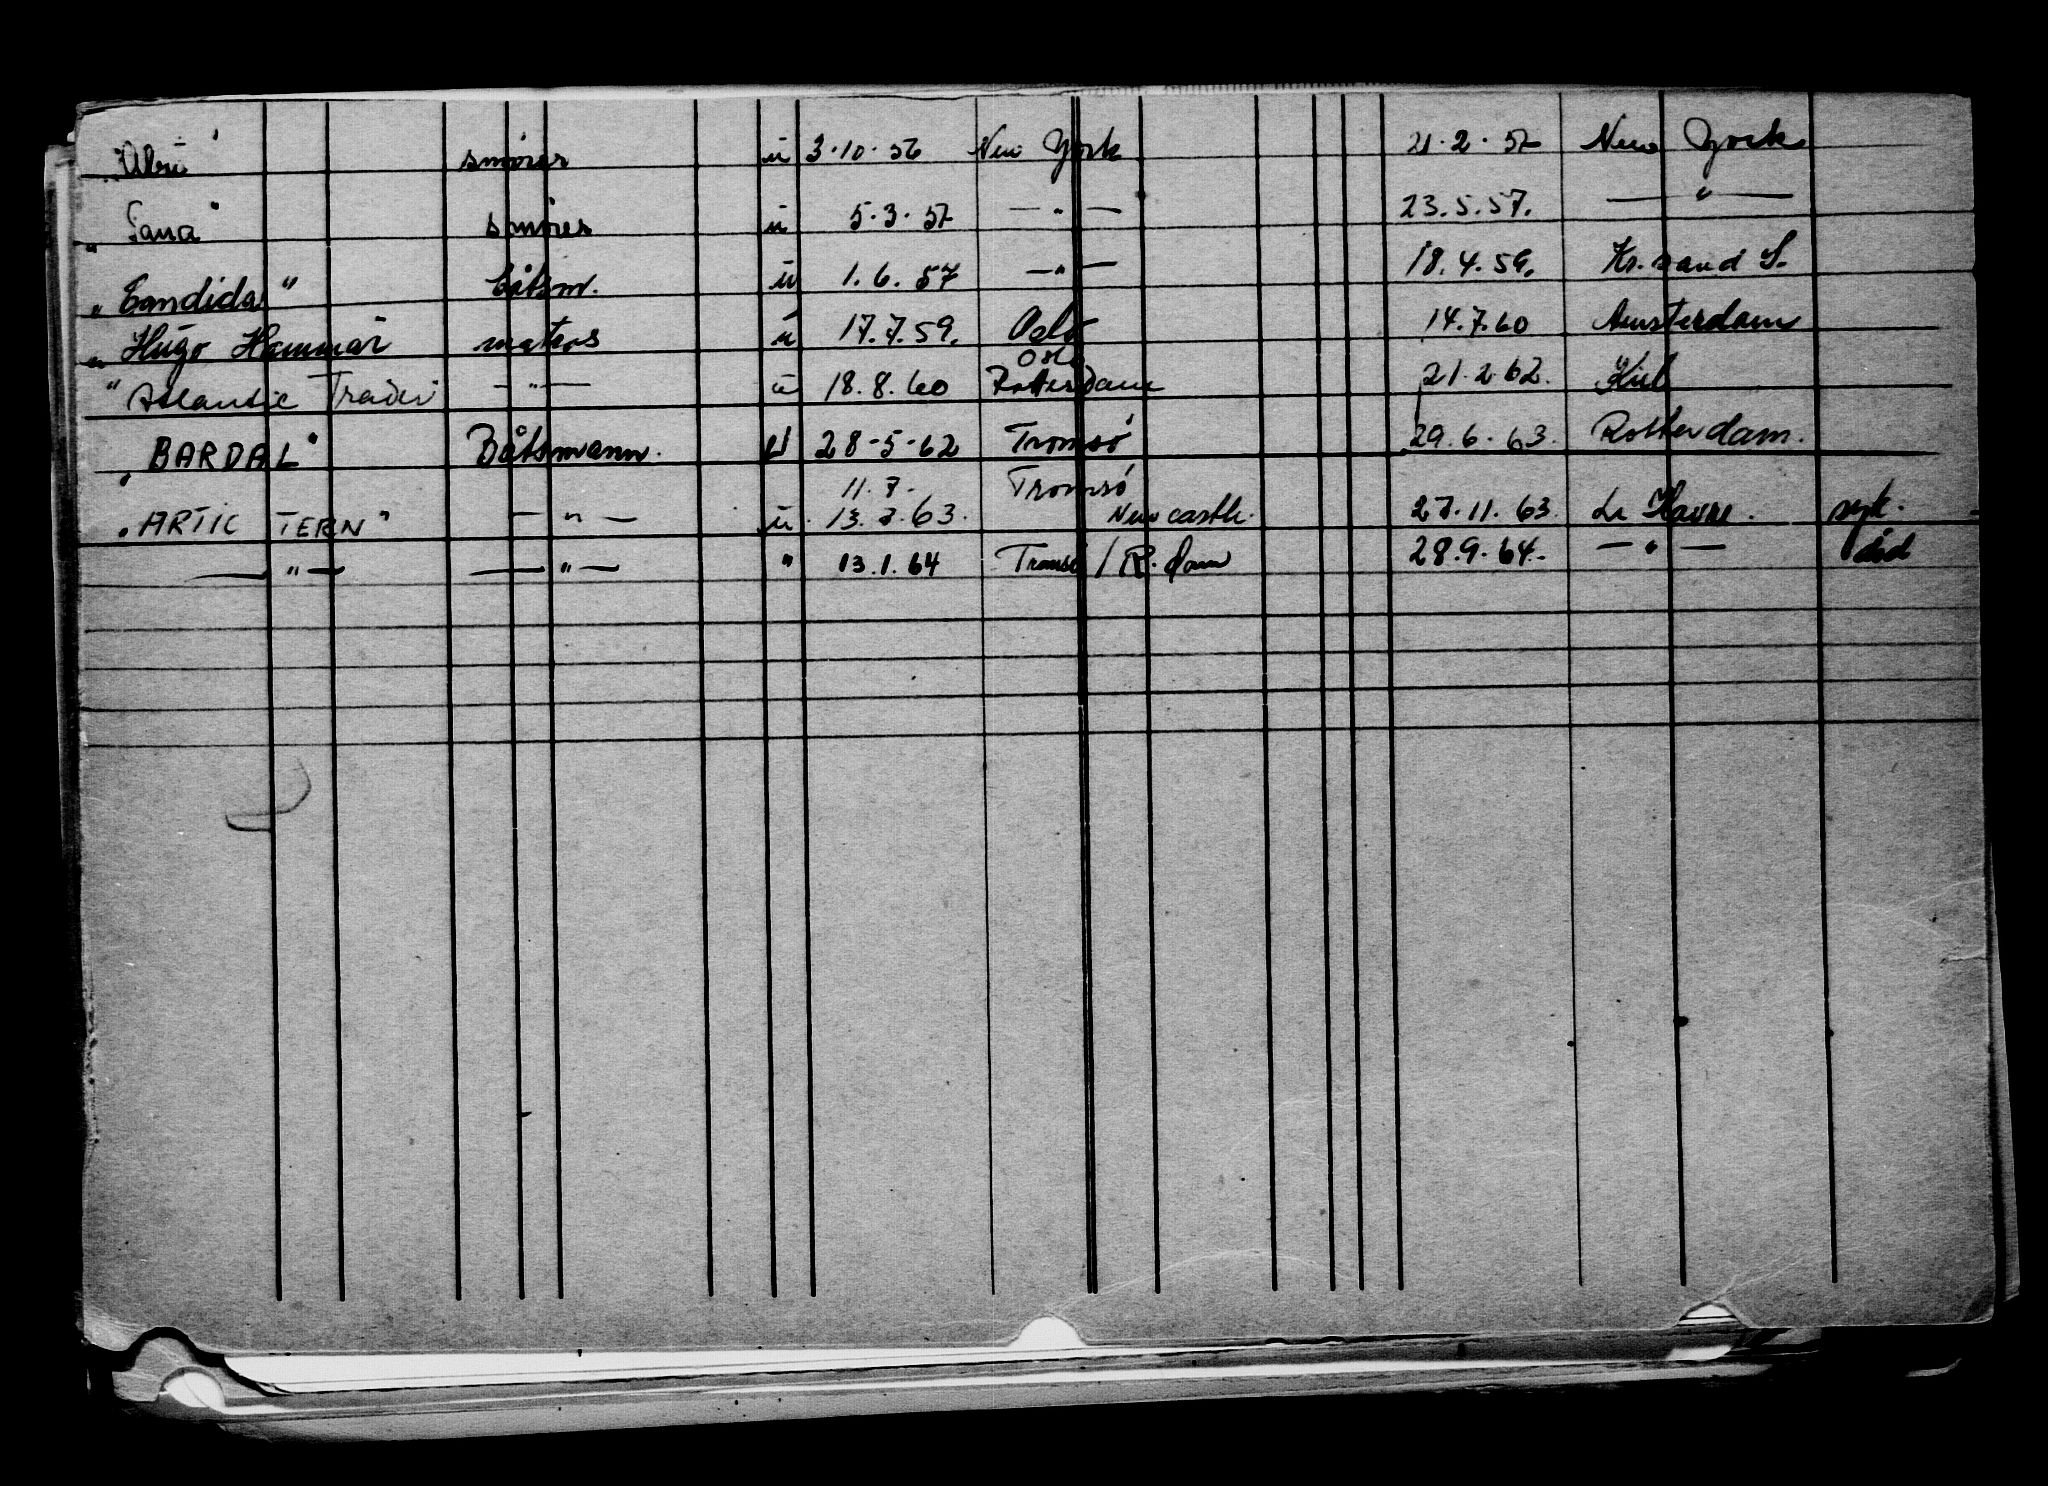 smører u 3.10.56 New York 21.2.57 New York
"Sana" smører u 5.3.57 — " — 23.5.57. — " —
"Candida" båtsm. u 1.6.57 — " — 18.4.59. Kr.sand S.
"Hugo Hammar" matros u 17.7.59. Oslo 14.7.60 Amsterdam
Oslo
"Atlantic Trader — " — u 18.8.60 Rotterdam 21.2.62. Kiel
"BARDAL" Båtsmann. U 28-5-62 Tromsø 29.6.63. Rotterdam.
11.7. Tromsø
"ARTIC TERN" — " — u. 13.7.63. Newcastle. 27.11.63. Le Havre. syk.
— " — — " — " 13.1.64 Tromsø / R.dam 28.9.64. — " — død